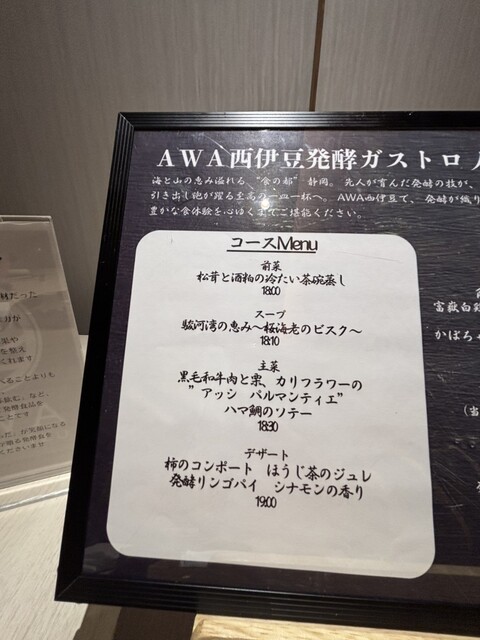 AWA西伊豆発酵ガストロノ
海と山の恵み溢れる “食の都” 静岡。 先人が育んだ発酵の技が、
引き出し泡が躍る至高の一皿一杯へ。 AWA西伊豆で、発酵が織り
豊かな食体験を心ゆくまでご堪能ください。
コースMenu
前菜
松茸と酒粕の冷たい茶碗蒸し
18:00
スープ
駿河湾の恵み〜桜海老のビスク〜
18:10
主菜
黒毛和牛肉と栗、カリフラワーの
”アッシ パルマンティエ”
ハマ鯛のソテー
18:30
デザート
柿のコンポート ほうじ茶のジュレ
発酵リンゴパイ シナモンの香り
19:00
富嶽白
かぼち
(当
材だった
を整え
くれます
べることよりも
、など、
発酵食品を
ことです